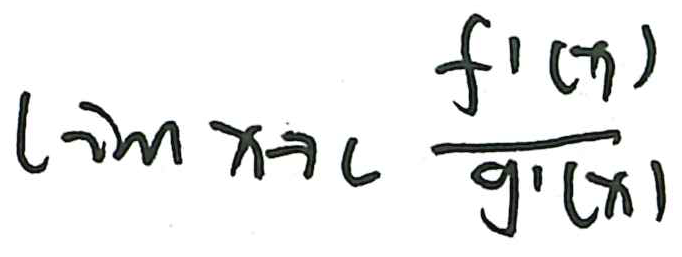 lim x→c f'(x)/g'(x)